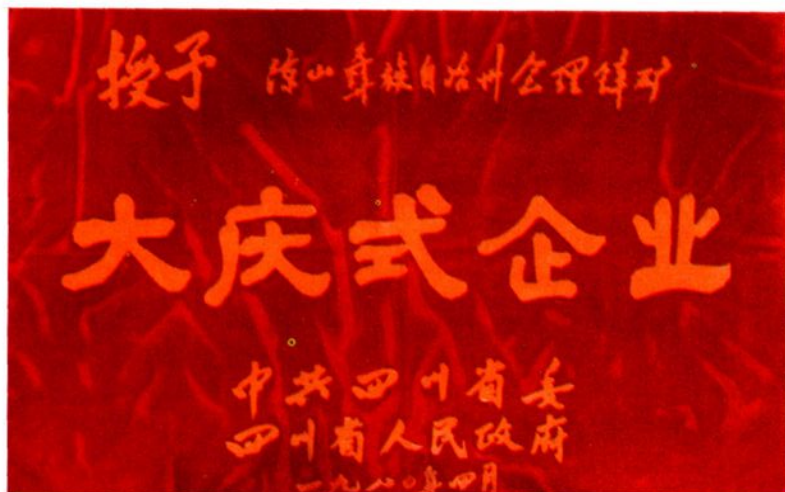 授予 凉山彝族自治州会理锌矿
大庆式企业
中共四川省委
四川省人民政府
一九八〇年四月